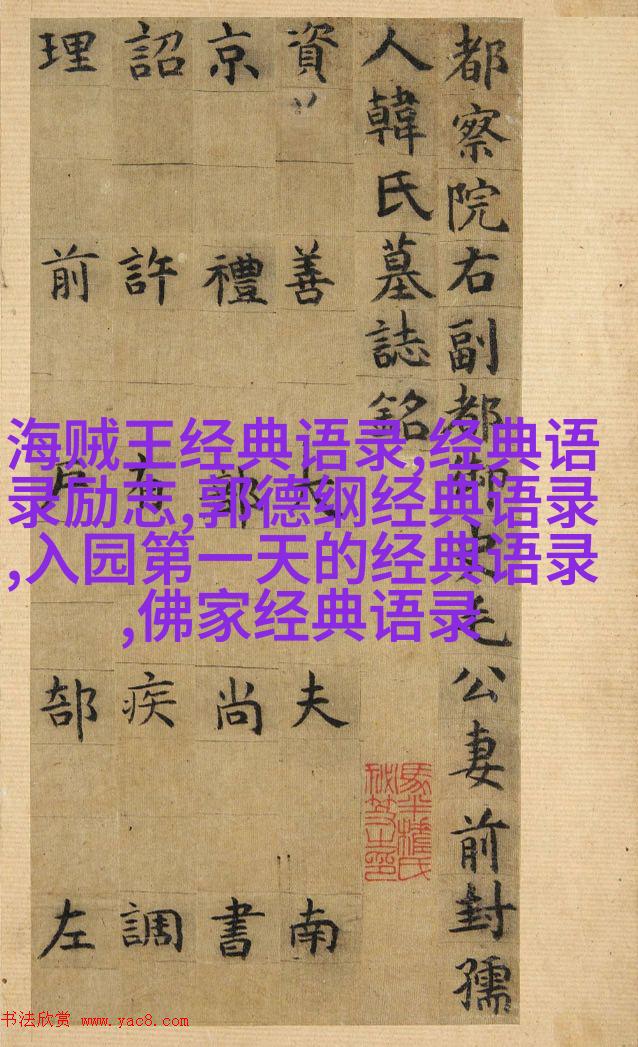 都察院右副都御史毛公妻前封孺
人韓氏墓誌銘
資善大夫南
京禮部尚書
詔許疾調
理前戶部左
海贼王经典语录,经典语
录励志,郭德纲经典语录
,入园第一天的经典语录
,佛家经典语录
书法欣赏 www.yac8.com